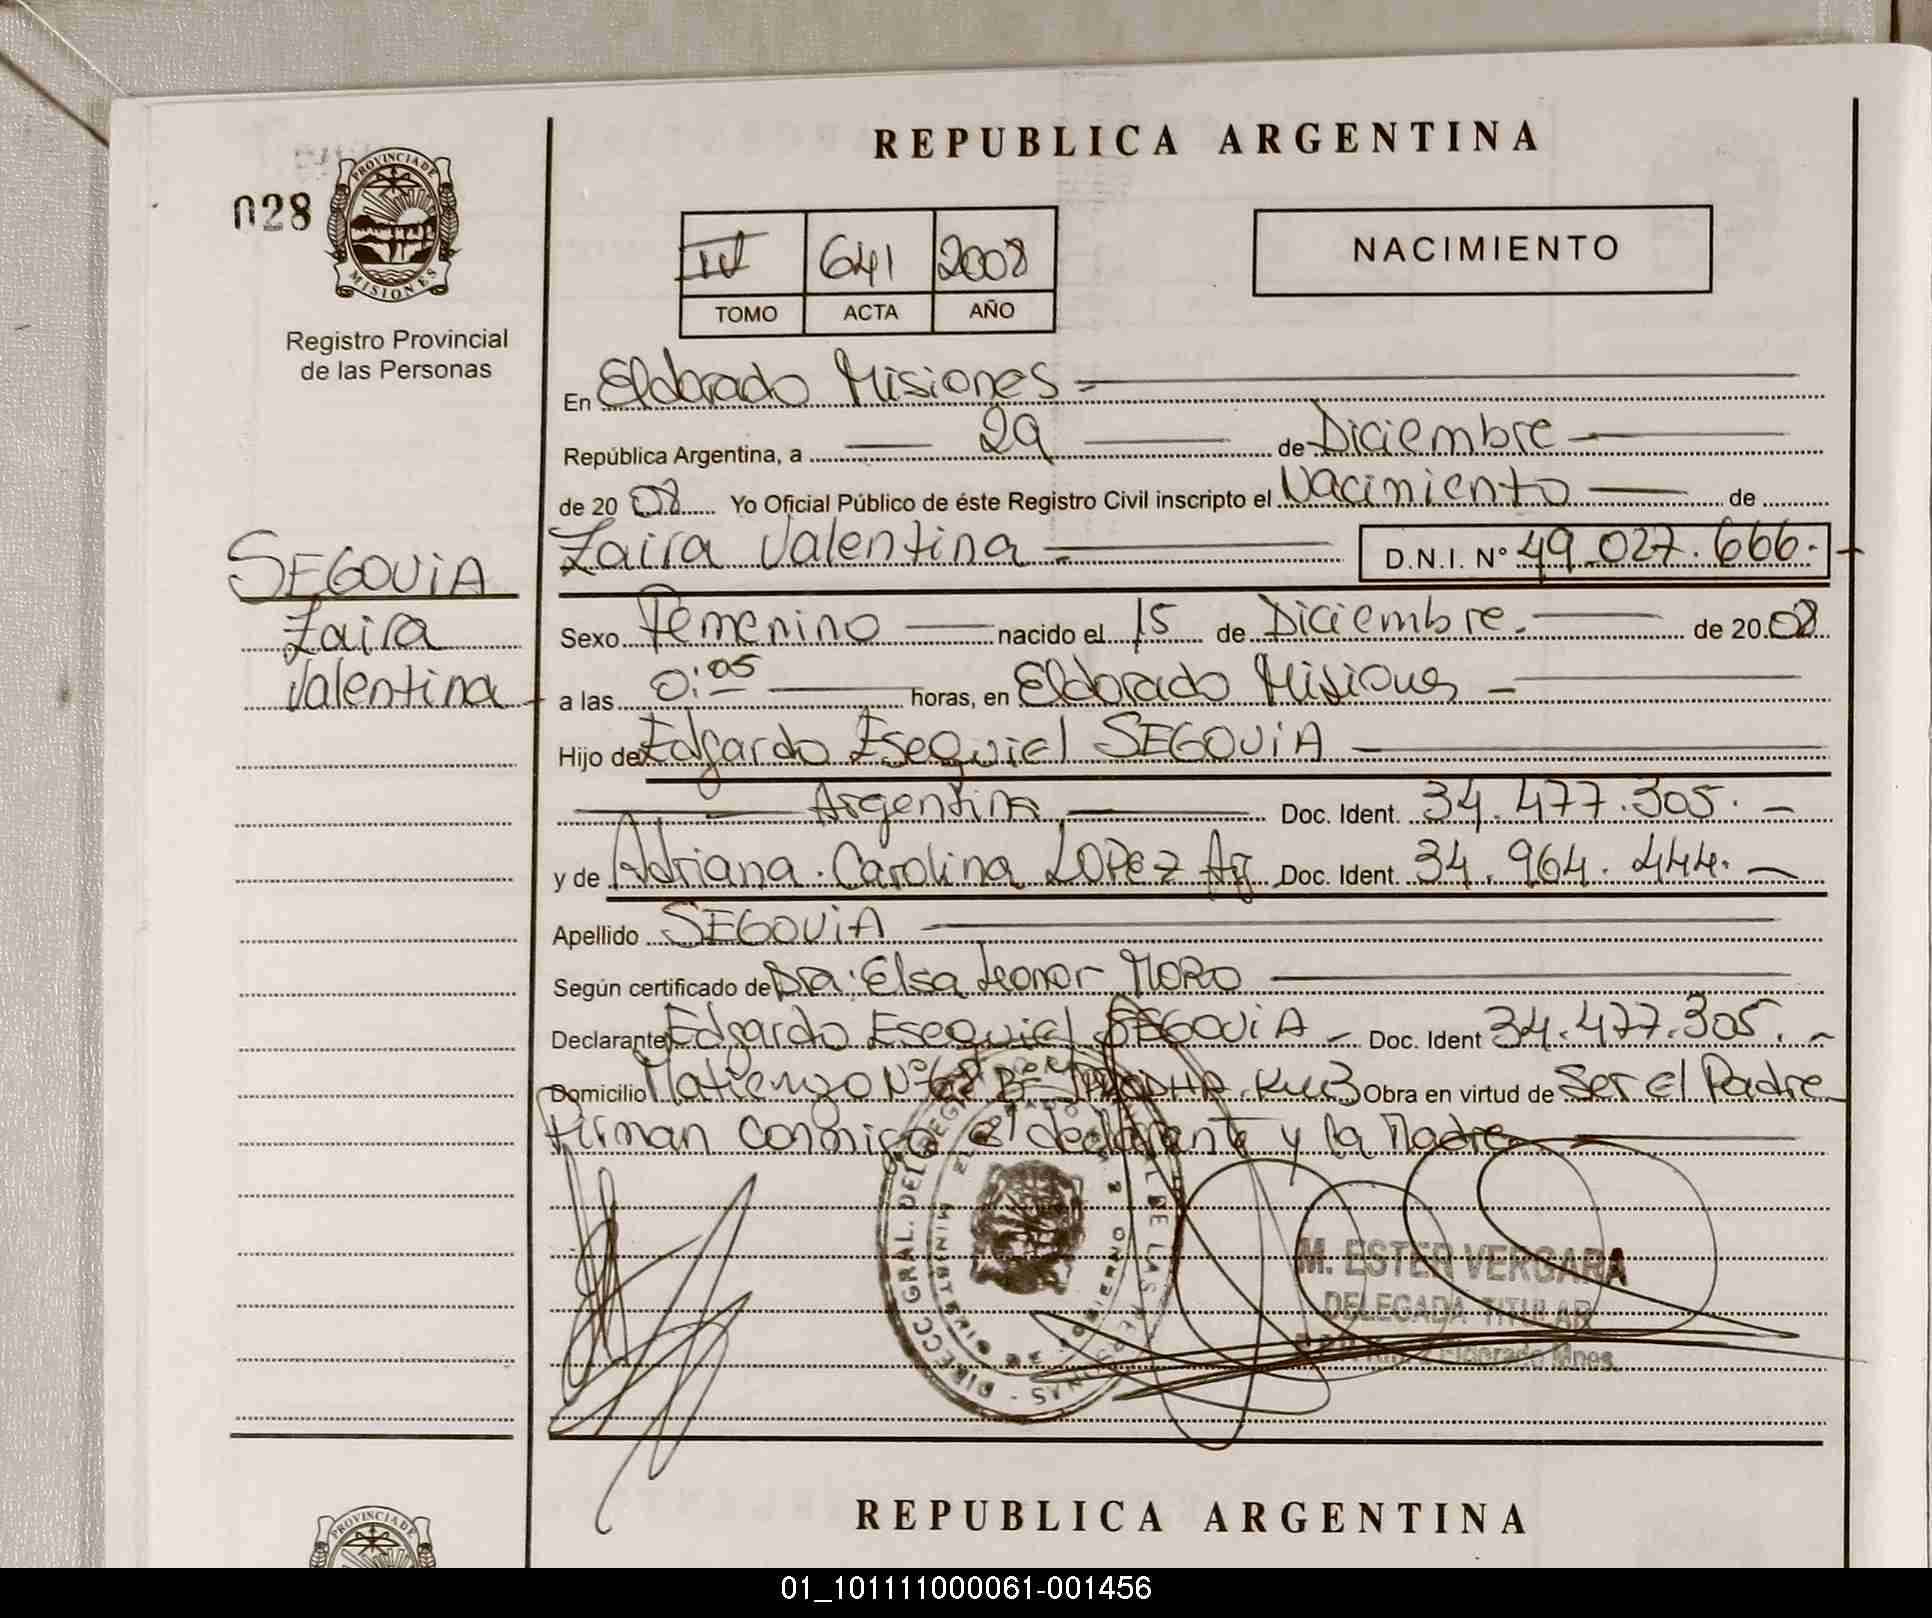 REPUBLICA ARGENTINA
028
PROVINCIA DE
MISIONES
Registro Provincial
de las Personas
IV 641 2008
TOMO ACTA AÑO
NACIMIENTO
En Eldorado Misiones
República Argentina, a 29 de Diciembre
de 2008 Yo Oficial Público de éste Registro Civil inscripto el Nacimiento de
Zaira Valentina D.N.I. Nº 49.027.666.
SEGOVIA
Zaira
Valentina
Sexo Femenino nacido el 15 de Diciembre. de 2008
a las 0:05 horas, en Eldorado Misiones
Hijo de Edgardo Esequiel SEGOVIA
Argentina Doc. Ident. 34.477.305.
y de Adriana Carolina LOPEZ Arg. Doc. Ident. 34.964.444.
Apellido SEGOVIA
Según certificado de Dra. Elsa Leonor MORO
Declarante Edgardo Esequiel SEGOVIA Doc. Ident 34.477.305.
Domicilio Matienzo Nº Obra en virtud de Ser el Padre
Firman conmigo el declarante y la Madre
M. ESTER VERGARA
DELEGADA TITULAR
Eldorado Mnes.
REPUBLICA ARGENTINA
PROVINCIA DE
01_101111000061-001456